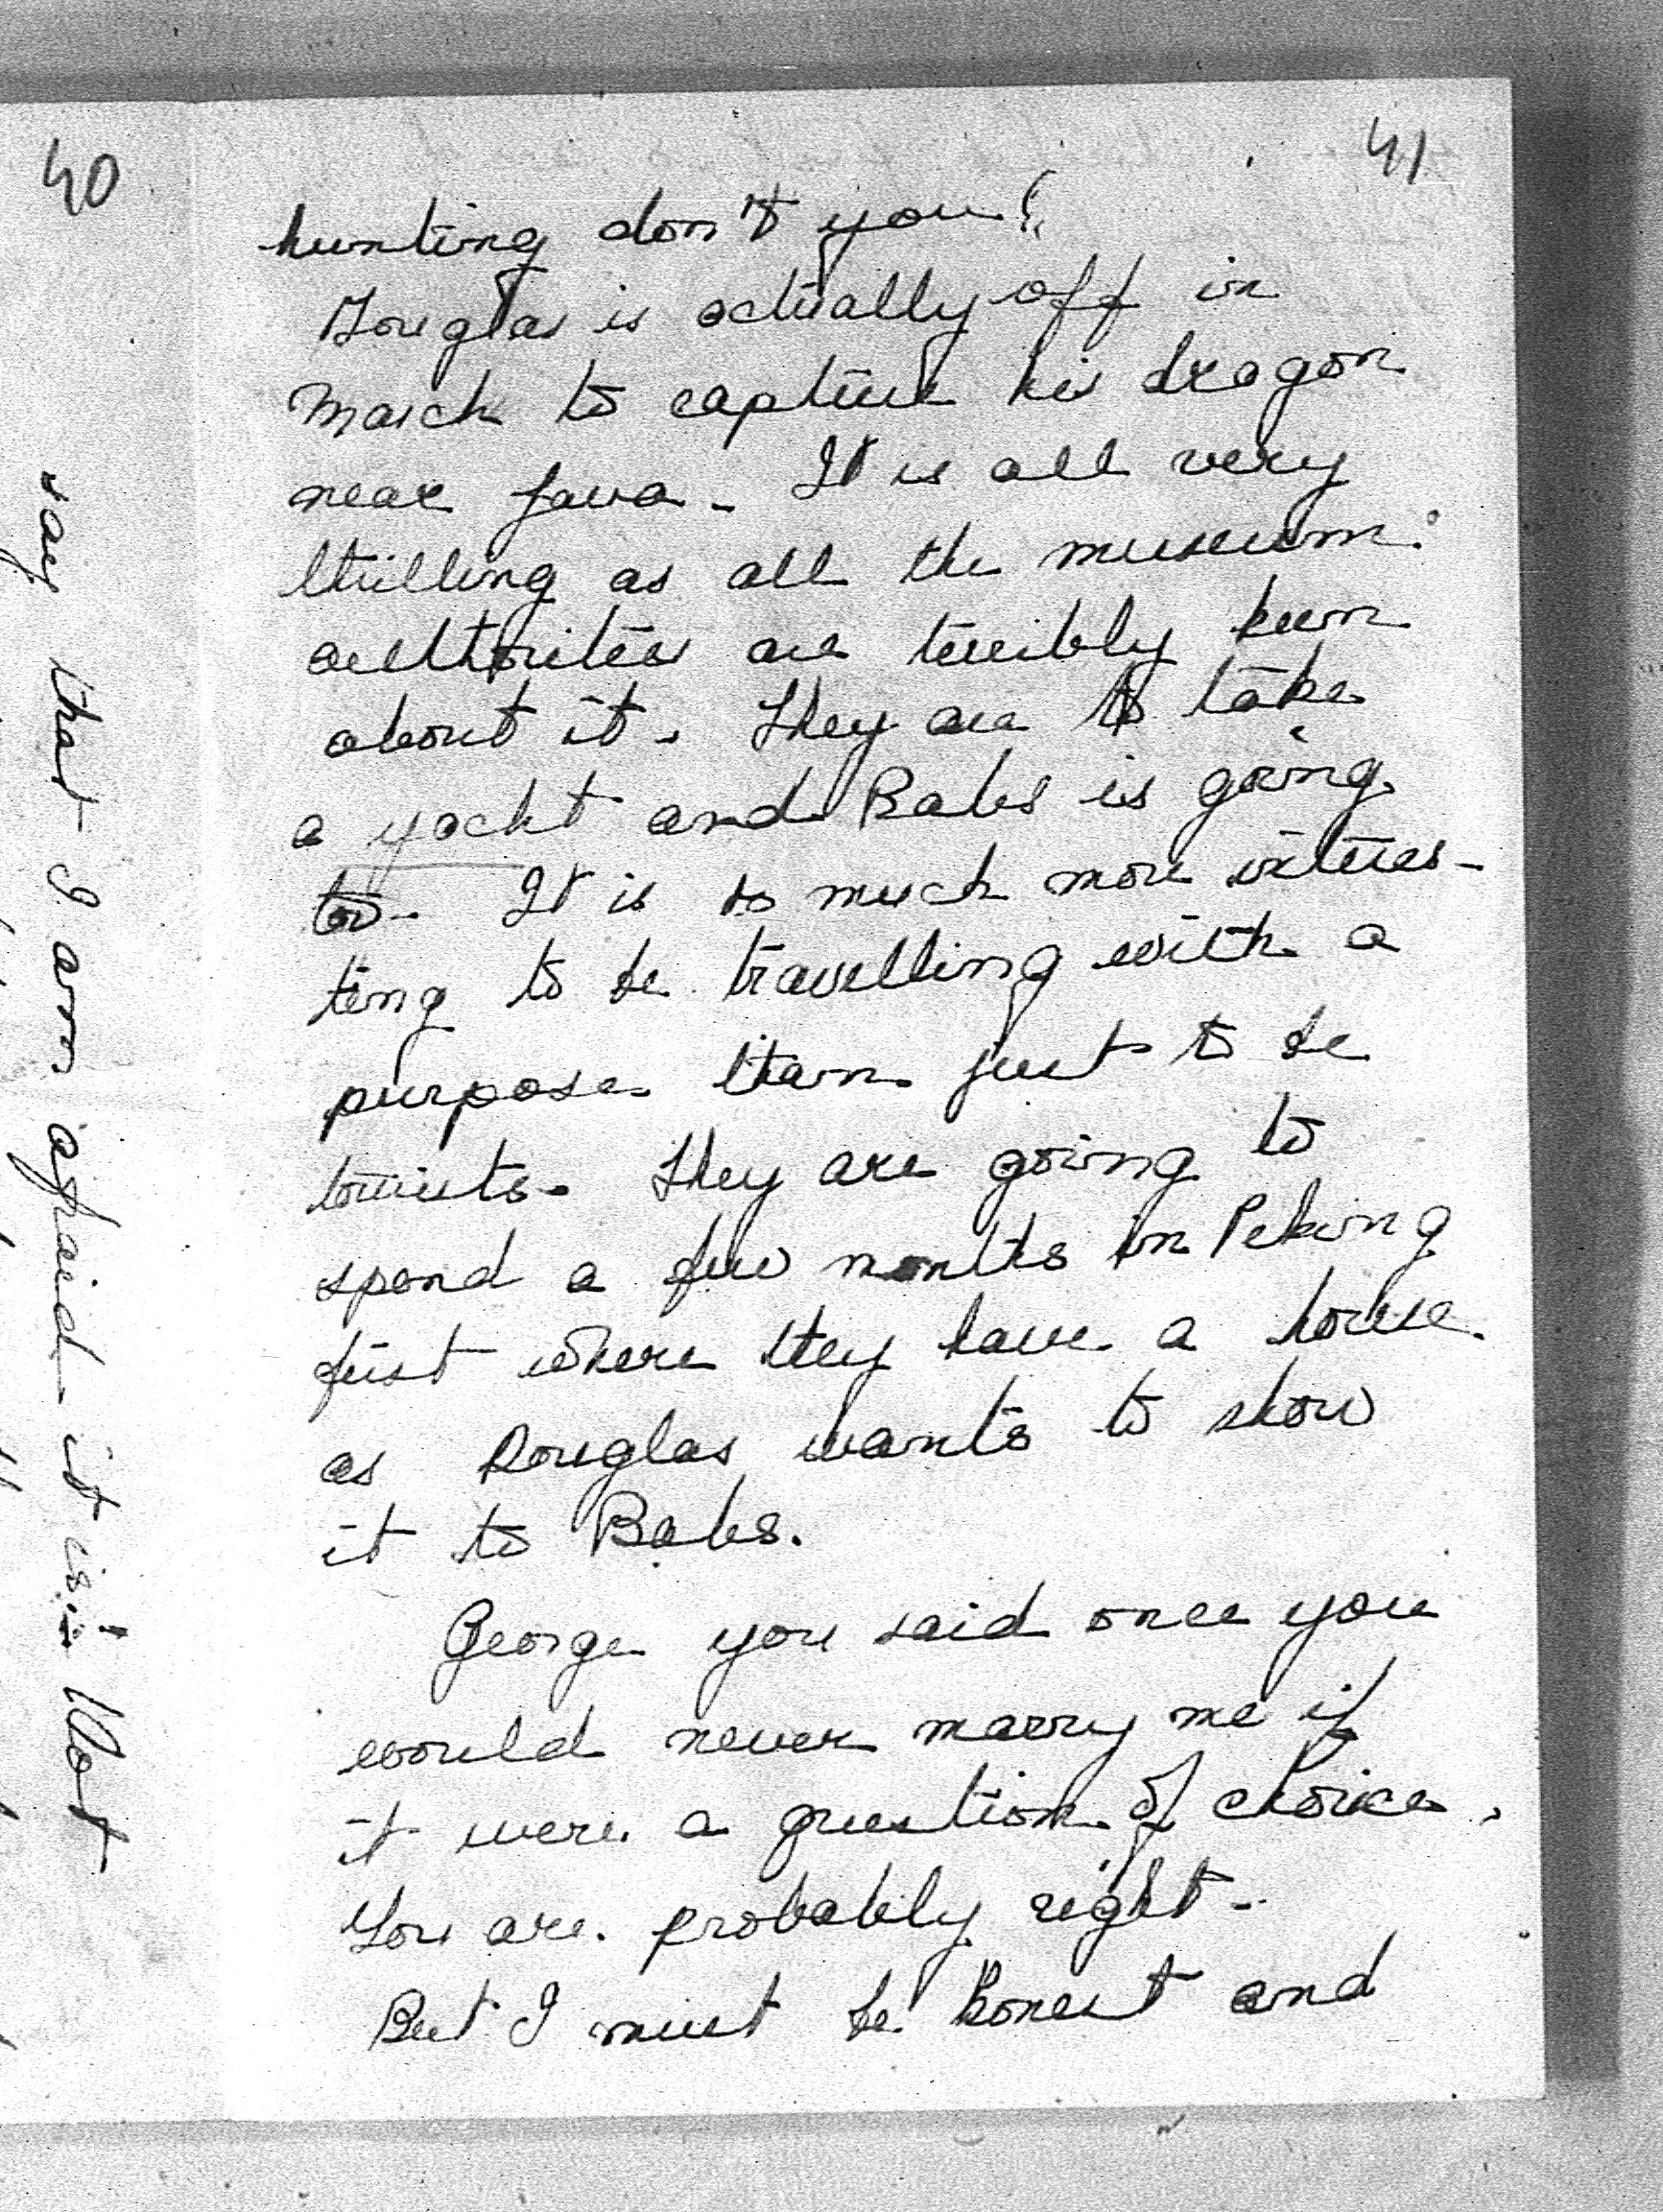 40
say that I am afraid it is. Not
41
hunting don't you?
Douglas is actually off in
March to capture his dragon
near Java - It is all very
thrilling as all the museum
authorities are terribly keen
about it. They are to take
a yacht and Babs is going
too - It is so much more interes-
ting to be travelling with a
purpose than just to be
tourists. They are going to
spend a few months in Peking
first where they have a house
as Douglas wants to show
it to Babs.
George you said once you
would never marry me if
it were a question of choice.
You are probably right -
But I must be honest and